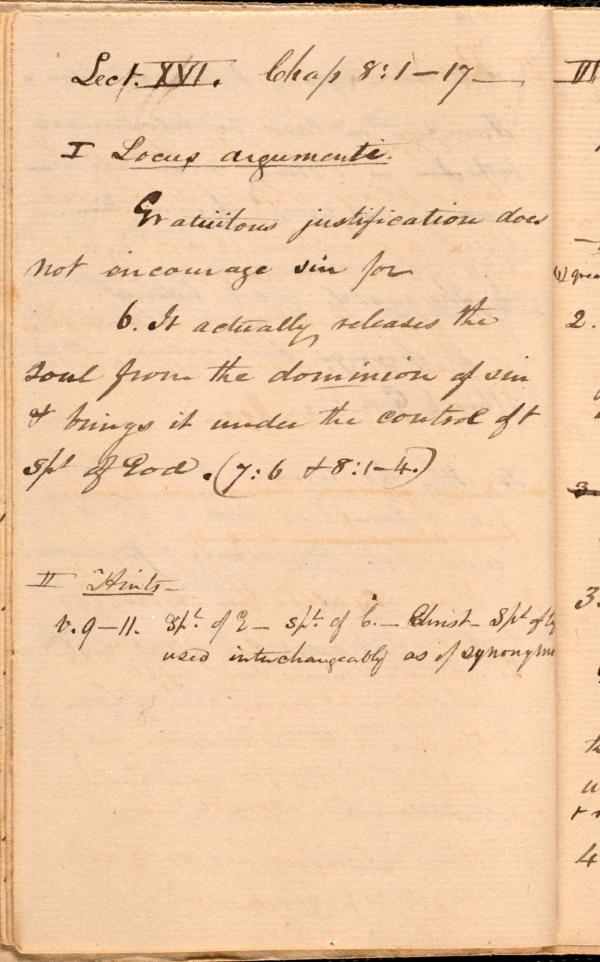 Lect. XVI. Chap 8:1-17
I Locus argumenti.
Gratuitous justification does
not encourage sin for
6. It actually releases the
soul from the dominion of sin
& brings it under the control of t
Spt of God. (7:6 & 8:1-4.)
II Hints
v. 9-11. Spt. of G - Spt. of C. - Christ - Spt of
used interchangeably as if synonyms
III
(1) grea
2.
3
3.
4